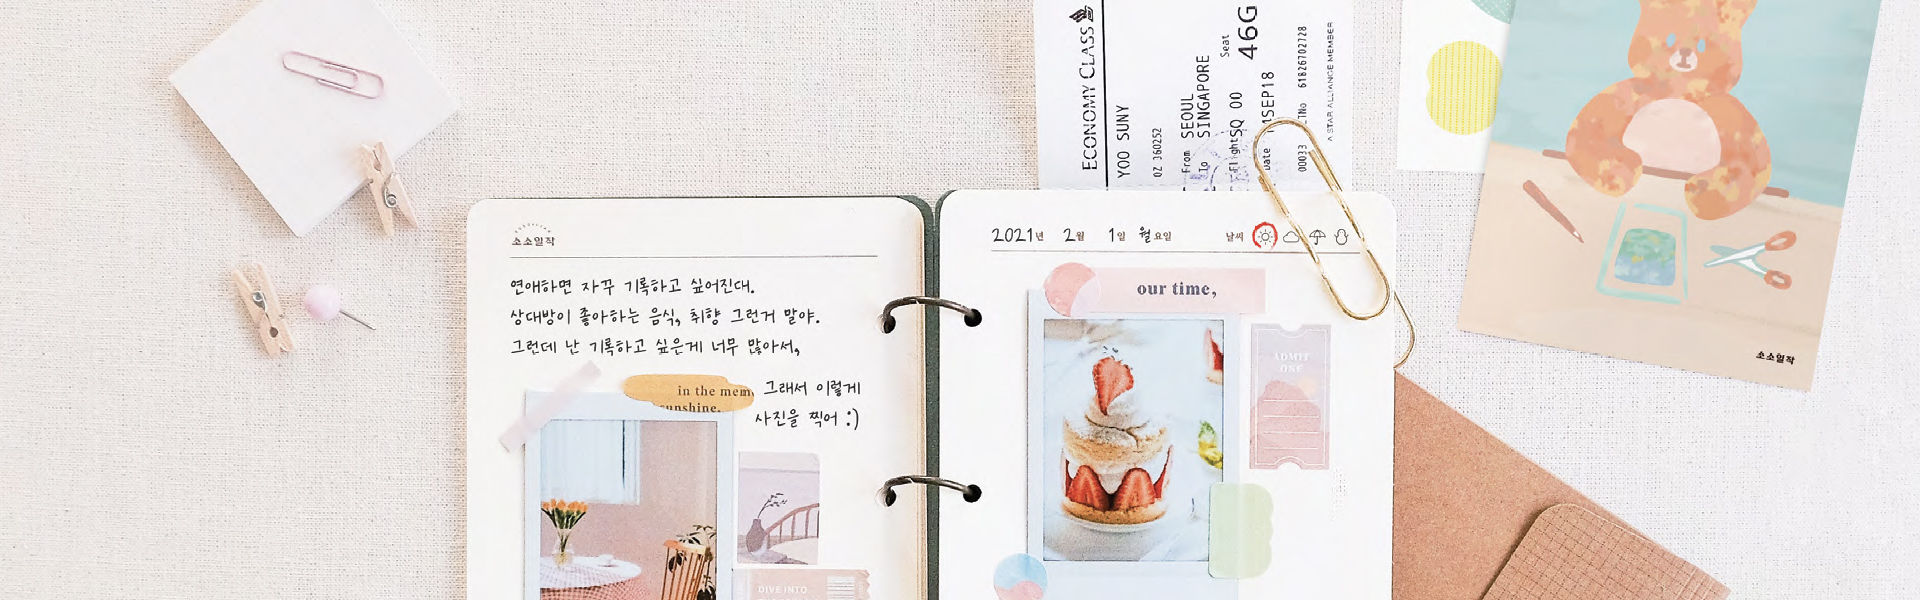 ECONOMY CLASS
YOO SUNY
OZ 360252
From SEOUL
To SINGAPORE
Flight SQ 00
Seat
46G
Date
SEP18
00033
61826702728
A STAR ALLIANCE MEMBER
소소일작
연애하면 자꾸 기록하고 싶어진대.
상대방이 좋아하는 음식, 취향 그런거 말야.
그런데 난 기록하고 싶은게 너무 많아서,
그래서 이렇게
사진을 찍어 :)
in the mem
sunshine.
DIVE INTO
2021년 2월 1일 월요일 날씨
our time,
ADMIT
ONE
소소일작